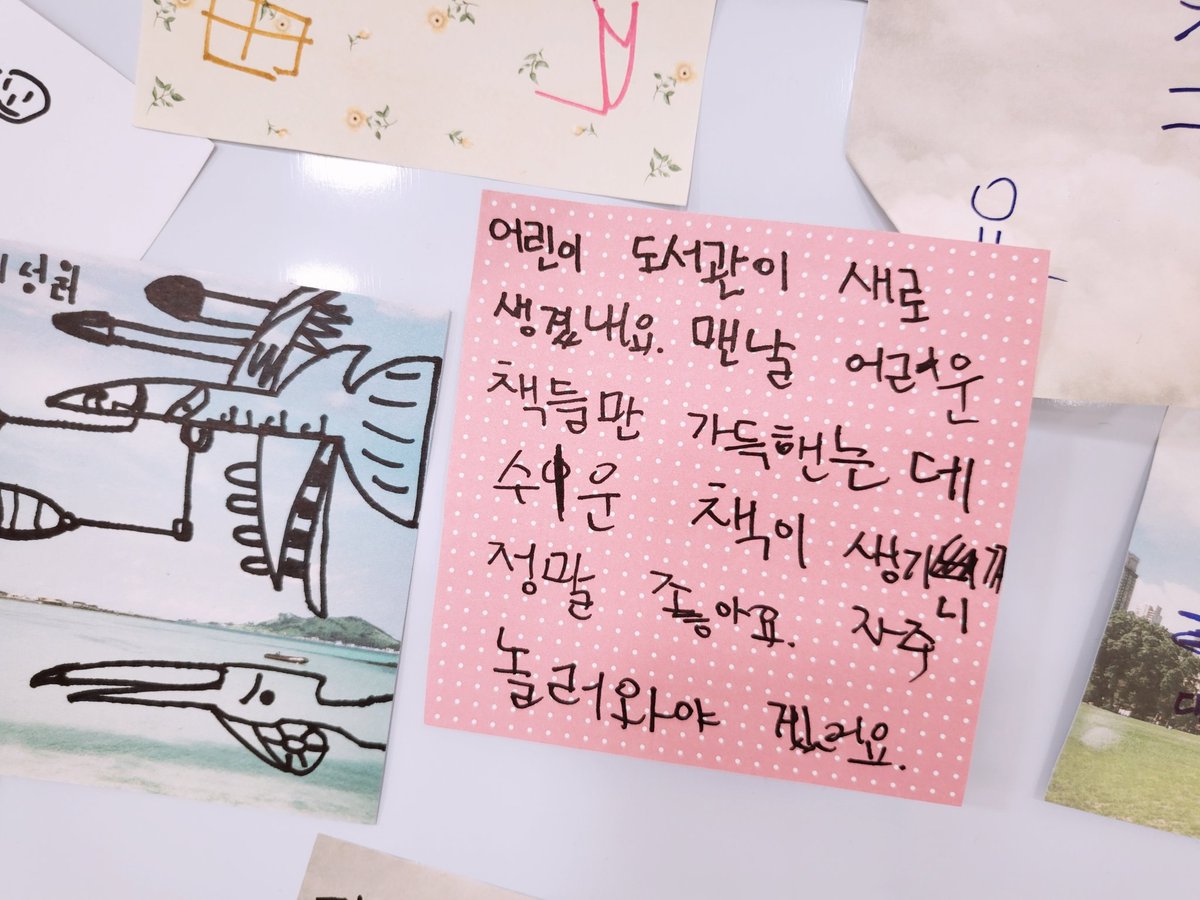 어린이 도서관이 새로
생겼내요. 맨날 어려운
책들만 가득핸는 데
수ㅣ운 책이 생기니까
정말 좋아요. 자주
놀러와야 겠러요.